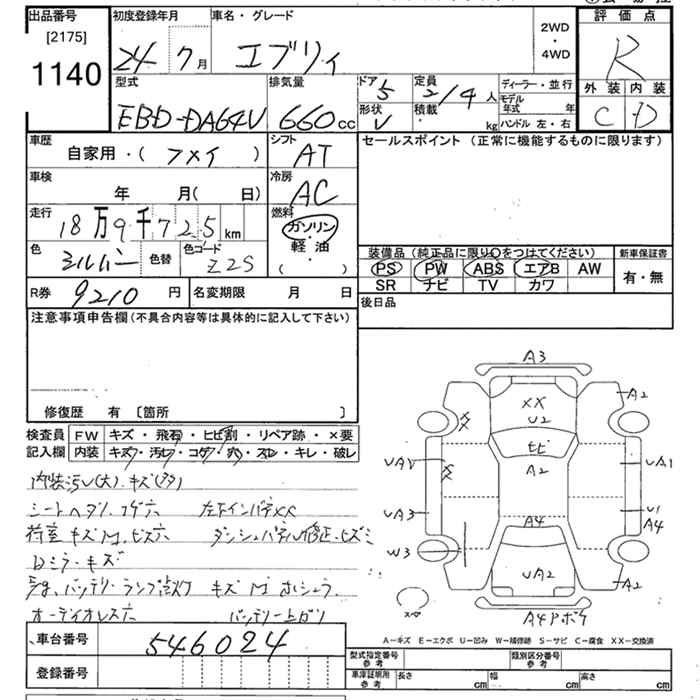 出品番号 初度登録年月 車名・グレード 2WD・4WD 評価点
[2175]
1140
24 7月 エブリィ R
型式 排気量 ドア 5 定員 2/4人 ディーラー・並行 外装 内装
EBD-DA64V 660cc 形状 V 積載 kg モデル年式 年 ハンドル 左・右 C D
車歴 自家用・( ) シフト AT セールスポイント (正常に機能するものに限ります)
車検 年 月( 日) 冷房 AC
走行 18万9千725km 燃料 ガソリン 軽・油 ( )
色 色替 色コード Z2S
装備品 (純正品に限り〇をつけてください) 新車保証書
PS PW ABS エアB AW 有・無
SR ナビ TV カワ
R券 9210円 名変期限 月 日 後日品
注意事項申告欄(不具合内容等は具体的に記入して下さい)
修復歴 有 [箇所 ]
検査員 FW キズ・飛石・ヒビ割・リペア跡・×要
記入欄 内装 キズ・汚レ・コゲ・穴・スレ・キレ・破レ
内装汚レ(大)・キズ
荷室 キズ
ミラーキズ
バッテリーランプ点灯 キズ
オーディオレス穴 バッテリー上ガリ
A3
A2
XX
U2
XX
ヒビ
UA1
A2
UA1
XX
UA3
A4
U1
A4
W3
UA2
A2
A4
A-キズ E-エクボ U-凹み W-補修跡 S-サビ C-腐食 XX-交換済
車台番号 546024
登録番号
型式指定番号 参考 類別区分番号 参考
車庫証明用 参考 長さ cm 幅 cm 高さ cm